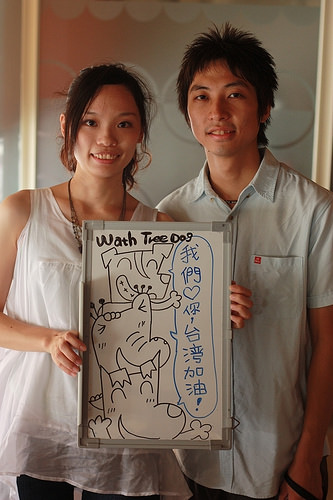 Wath Tree Dog
我們♡你!台湾加油!